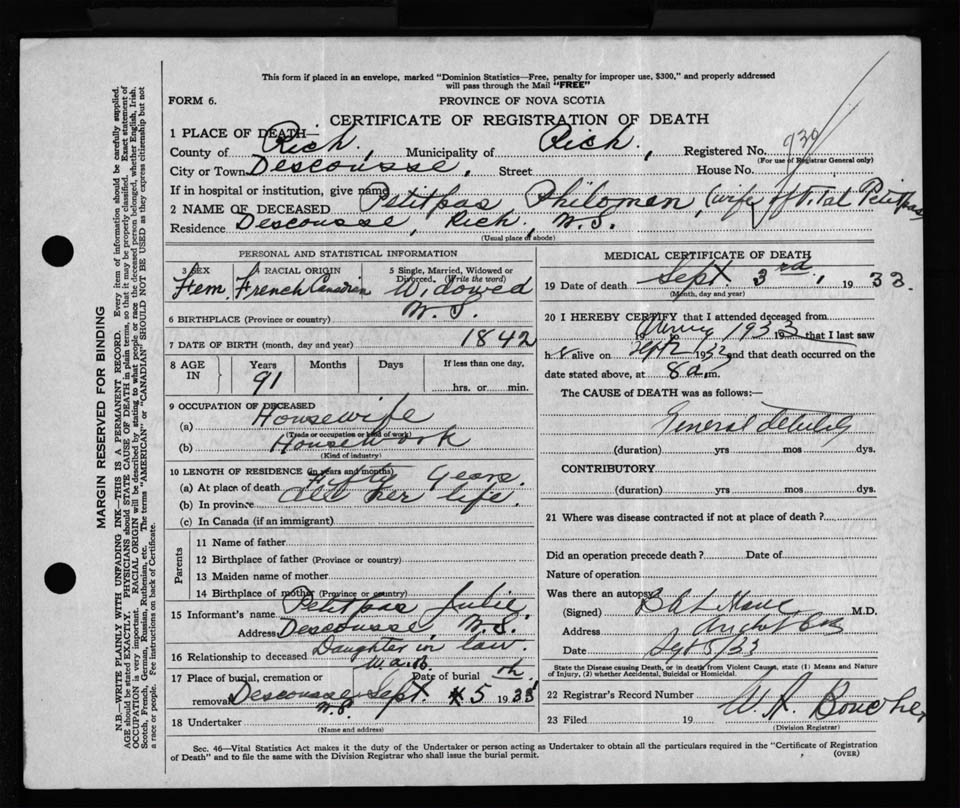 This form if placed in an envelope, marked "Dominion Statistics—Free, penalty for improper use, $300," and properly addressed
will pass through the Mail "FREE"
FORM 6.
PROVINCE OF NOVA SCOTIA
CERTIFICATE OF REGISTRATION OF DEATH
1 PLACE OF DEATH—
County of Rich, Municipality of Rich, Registered No. 930
(For use of Registrar General only)
City or Town Descousse, Street House No.
If in hospital or institution, give name
2 NAME OF DECEASED Petitpas Philomen, (wife of Vital Petitpas
Residence Descousse, Rich, N.S.
(Usual place of abode)
PERSONAL AND STATISTICAL INFORMATION
3 SEX Fem. 4 RACIAL ORIGIN French Canadian 5 Single, Married, Widowed or Divorced. (Write the word) Widowed
6 BIRTHPLACE (Province or country) N.S.
7 DATE OF BIRTH (month, day and year) 1842
8 AGE IN Years 91 Months Days If less than one day, hrs. or min.
9 OCCUPATION OF DECEASED
(a) Housewife
(Trade or occupation or kind of work)
(b) Housework
(Kind of industry)
10 LENGTH OF RESIDENCE (in years and months)
(a) At place of death Fifty Years.
(b) In province All her life.
(c) In Canada (if an immigrant)
Parents
11 Name of father
12 Birthplace of father (Province or country)
13 Maiden name of mother
14 Birthplace of mother (Province or country)
15 Informant's name Petitpas Julie
Address Descousse, N.S.
16 Relationship to deceased Daughter in law.
17 Place of burial, cremation or removal Descousse N.S. Date of burial Sept. 5th 1933
18 Undertaker
(Name and address)
MEDICAL CERTIFICATE OF DEATH
19 Date of death Sept. 3rd, 1933.
(Month, day and year)
20 I HEREBY CERTIFY that I attended deceased from
1933 193 that I last saw
h alive on Sept 2 193 and that death occurred on the
date stated above, at 8 a.m.
The CAUSE OF DEATH was as follows:—
General debility
(duration) yrs mos dys.
CONTRIBUTORY
(duration) yrs mos dys.
21 Where was disease contracted if not at place of death?
Did an operation precede death? Date of
Nature of operation
Was there an autopsy
(Signed) M.D.
Address
Date Sept 5/33
State the Disease causing Death, or in death from Violent Causes, state (1) Means and Nature
of Injury, (2) whether Accidental, Suicidal or Homicidal.
22 Registrar's Record Number
23 Filed 19 W. A. Boucher
(Division Registrar)
Sec. 46—Vital Statistics Act makes it the duty of the Undertaker or person acting as Undertaker to obtain all the particulars required in the "Certificate of Registration
of Death" and to file the same with the Division Registrar who shall issue the burial permit.
(OVER)
MARGIN RESERVED FOR BINDING
N.B.—WRITE PLAINLY WITH UNFADING INK—THIS IS A PERMANENT RECORD. Every item of information should be carefully supplied.
AGE should be stated EXACTLY. PHYSICIANS should STATE CAUSE OF DEATH in plain terms, so that it may be properly classified. Exact statement of
OCCUPATION is very important. RACIAL ORIGIN will be described by stating to what people or race the deceased person belonged, whether English, Irish,
Scotch, French, German, Russian, Ruthenian, etc. The terms "AMERICAN" or "CANADIAN" SHOULD NOT BE USED as they express citizenship but not
a race or people. Fee Instructions on back of Certificate.